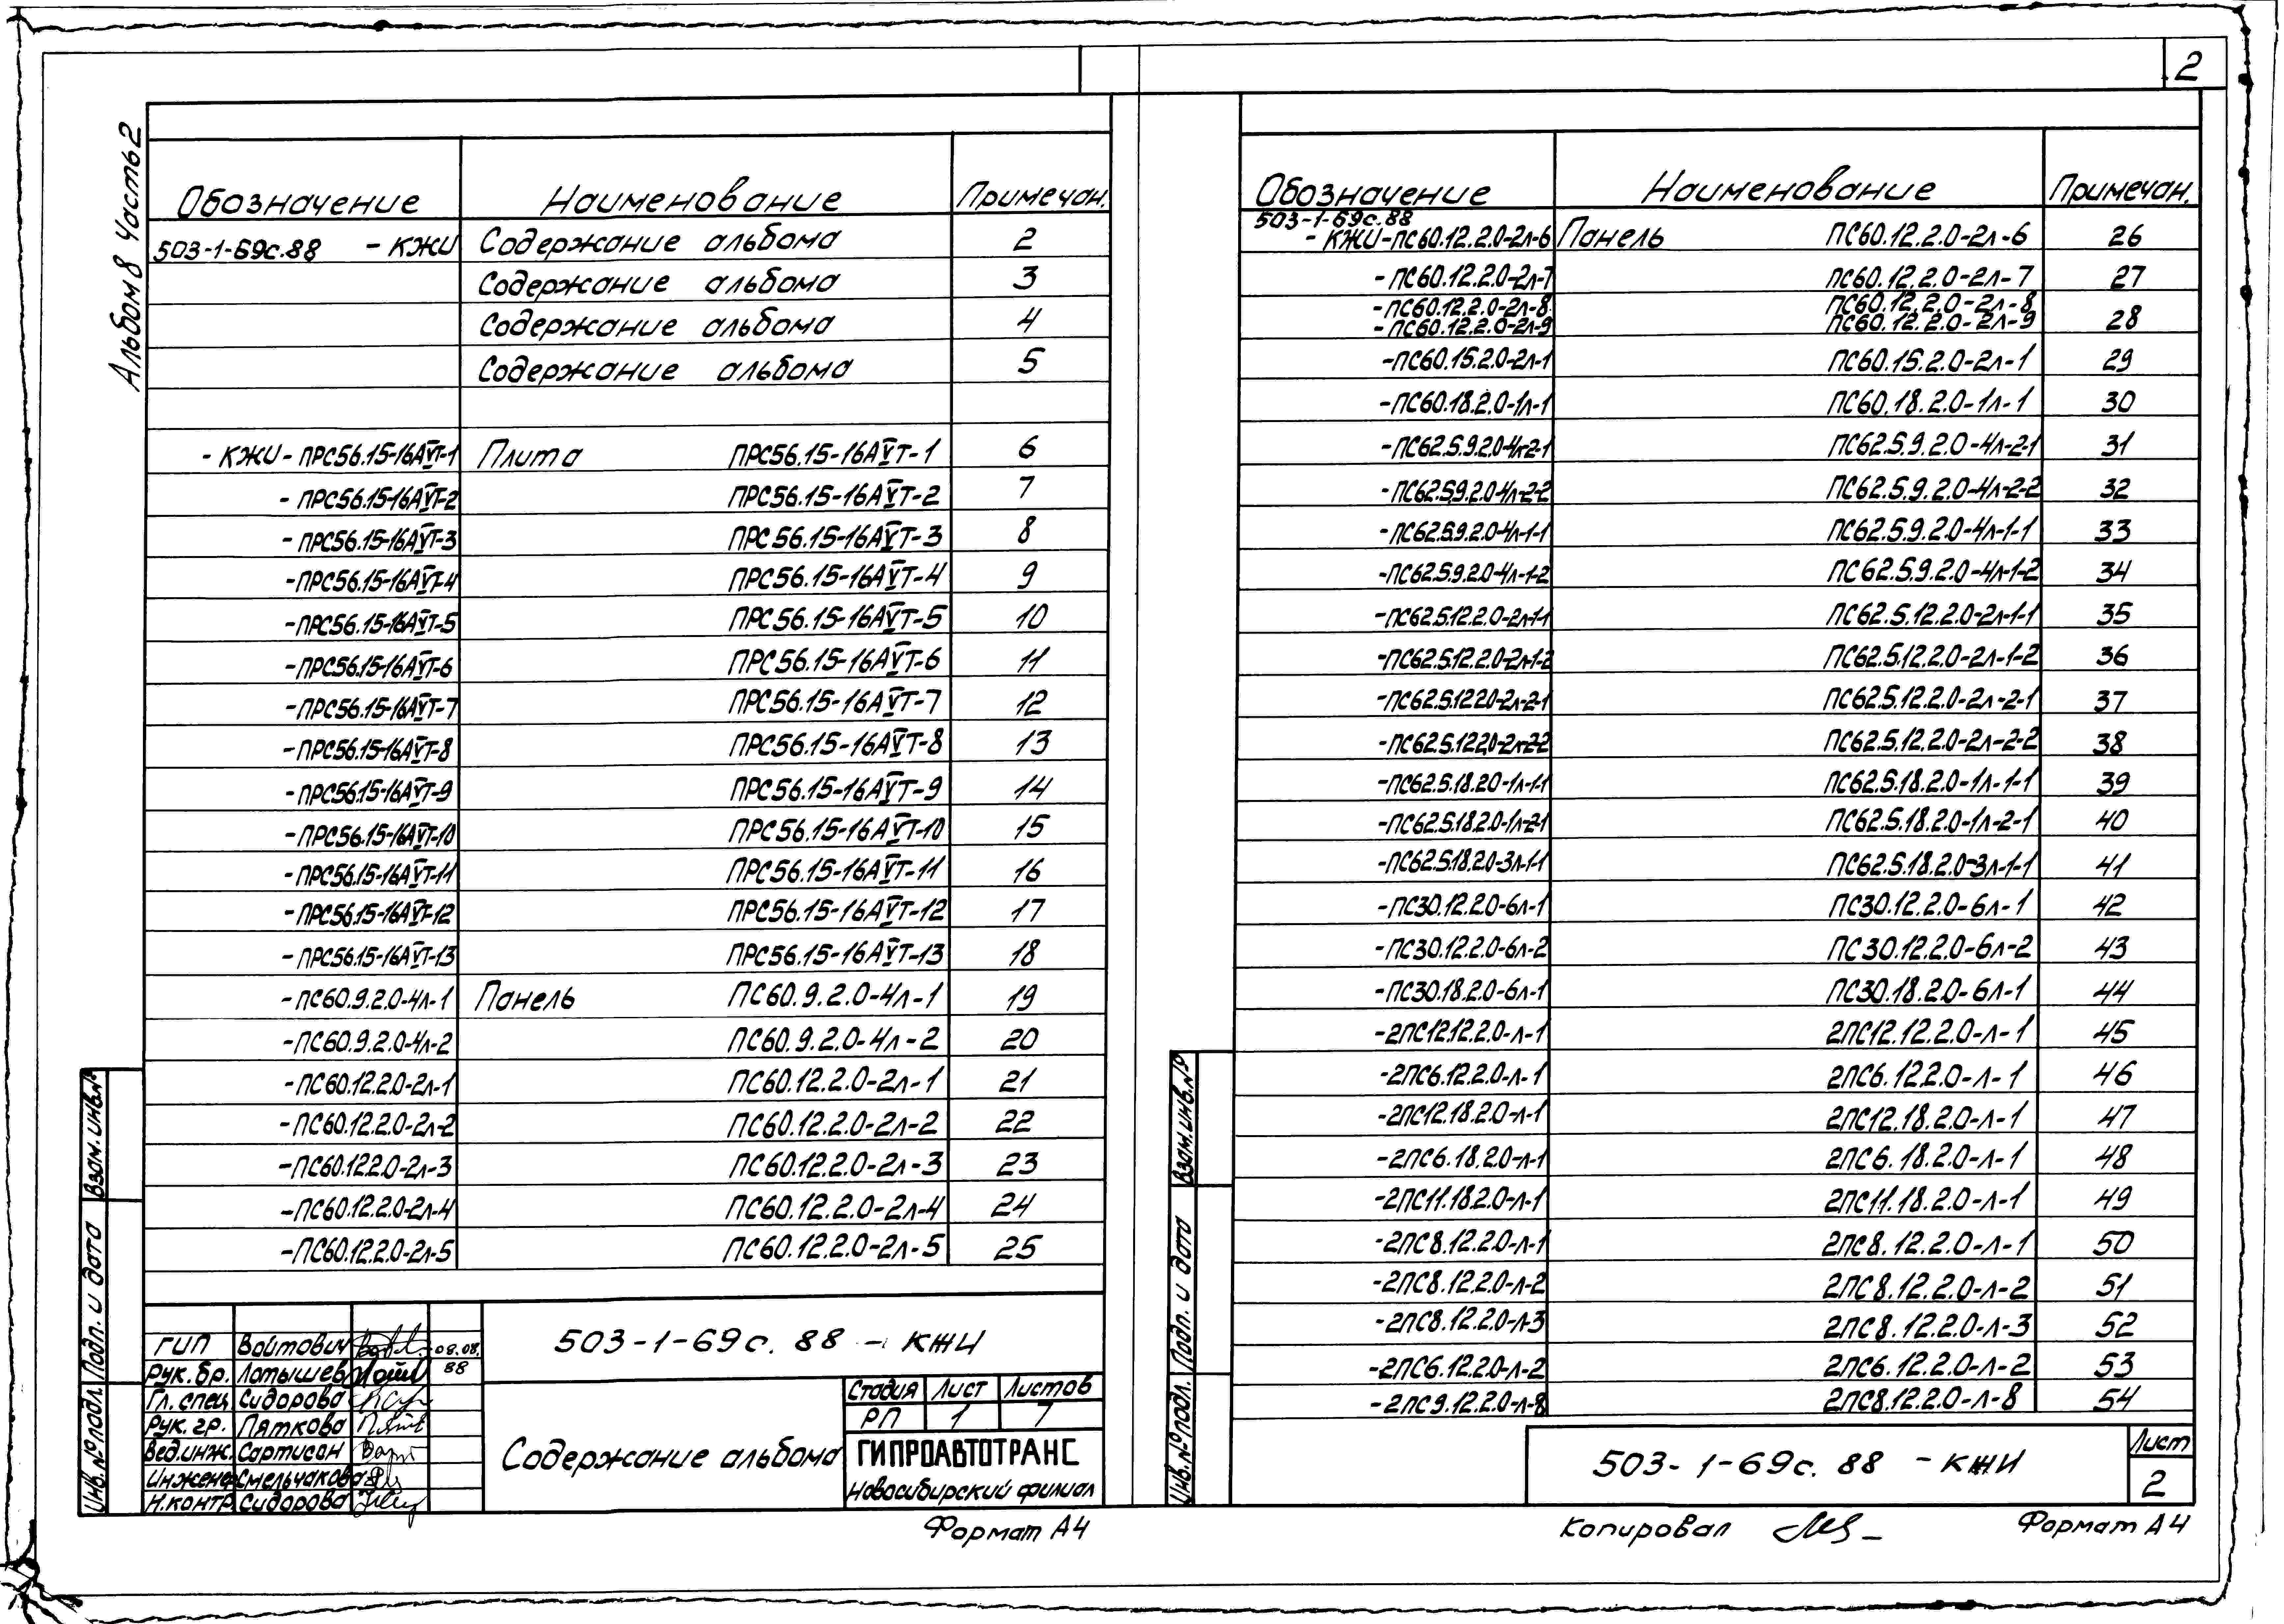 2
Альбом 8 Часть 2
Обозначение Наименование Примечан.
503-1-69с.88 - КЖИ Содержание альбома 2
Содержание альбома 3
Содержание альбома 4
Содержание альбома 5
- КЖИ - ПРС56.15-16АV̅T-1 Плита ПРС56.15-16АV̅T-1 6
- ПРС56.15-16АV̅T-2 ПРС56.15-16АV̅T-2 7
- ПРС56.15-16АV̅T-3 ПРС56.15-16АV̅T-3 8
- ПРС56.15-16АV̅T-4 ПРС56.15-16АV̅T-4 9
- ПРС56.15-16АV̅T-5 ПРС56.15-16АV̅T-5 10
- ПРС56.15-16АV̅T-6 ПРС56.15-16АV̅T-6 11
- ПРС56.15-16АV̅T-7 ПРС56.15-16АV̅T-7 12
- ПРС56.15-16АV̅T-8 ПРС56.15-16АV̅T-8 13
- ПРС56.15-16АV̅T-9 ПРС56.15-16АV̅T-9 14
- ПРС56.15-16АV̅T-10 ПРС56.15-16АV̅T-10 15
- ПРС56.15-16АV̅T-11 ПРС56.15-16АV̅T-11 16
- ПРС56.15-16АV̅T-12 ПРС56.15-16АV̅T-12 17
- ПРС56.15-16АV̅T-13 ПРС56.15-16АV̅T-13 18
- ПС60.9.2.0-4л-1 Панель ПС60.9.2.0-4л-1 19
- ПС60.9.2.0-4л-2 ПС60.9.2.0-4л-2 20
- ПС60.12.2.0-2л-1 ПС60.12.2.0-2л-1 21
- ПС60.12.2.0-2л-2 ПС60.12.2.0-2л-2 22
- ПС60.12.2.0-2л-3 ПС60.12.2.0-2л-3 23
- ПС60.12.2.0-2л-4 ПС60.12.2.0-2л-4 24
- ПС60.12.2.0-2л-5 ПС60.12.2.0-2л-5 25
Взам. инв.№
Подп. и дата
Инв.№подл.
ГИП Войтович 08.08.
Рук.бр. Латышев 88
Гл.спец Сидорова
Рук.гр. Пяткова
Вед.инж. Сартисон
Инженер Смельчакова
Н.контр. Сидорова
503-1-69с.88 - КЖИ
Содержание альбома
Стадия Лист Листов
РП 1 7
ГИПРОАВТОТРАНС
Новосибирский филиал
Формат А4
Обозначение Наименование Примечан.
503-1-69с.88
- КЖИ-ПС60.12.2.0-2л-6 Панель ПС60.12.2.0-2л-6 26
- ПС60.12.2.0-2л-7 ПС60.12.2.0-2л-7 27
- ПС60.12.2.0-2л-8 ПС60.12.2.0-2л-8
- ПС60.12.2.0-2л-9 ПС60.12.2.0-2л-9 28
- ПС60.15.2.0-2л-1 ПС60.15.2.0-2л-1 29
- ПС60.18.2.0-1л-1 ПС60.18.2.0-1л-1 30
- ПС62.5.9.2.0-4л-2-1 ПС62.5.9.2.0-4л-2-1 31
- ПС62.5.9.2.0-4л-2-2 ПС62.5.9.2.0-4л-2-2 32
- ПС62.5.9.2.0-4л-1-1 ПС62.5.9.2.0-4л-1-1 33
- ПС62.5.9.2.0-4л-1-2 ПС62.5.9.2.0-4л-1-2 34
- ПС62.5.12.2.0-2л-1-1 ПС62.5.12.2.0-2л-1-1 35
- ПС62.5.12.2.0-2л-1-2 ПС62.5.12.2.0-2л-1-2 36
- ПС62.5.12.2.0-2л-2-1 ПС62.5.12.2.0-2л-2-1 37
- ПС62.5.12.2.0-2л-2-2 ПС62.5.12.2.0-2л-2-2 38
- ПС62.5.18.2.0-1л-1-1 ПС62.5.18.2.0-1л-1-1 39
- ПС62.5.18.2.0-1л-2-1 ПС62.5.18.2.0-1л-2-1 40
- ПС62.5.18.2.0-3л-1-1 ПС62.5.18.2.0-3л-1-1 41
- ПС30.12.2.0-6л-1 ПС30.12.2.0-6л-1 42
- ПС30.12.2.0-6л-2 ПС30.12.2.0-6л-2 43
- ПС30.18.2.0-6л-1 ПС30.18.2.0-6л-1 44
- 2ПС12.12.2.0-л-1 2ПС12.12.2.0-л-1 45
- 2ПС6.12.2.0-л-1 2ПС6.12.2.0-л-1 46
- 2ПС12.18.2.0-л-1 2ПС12.18.2.0-л-1 47
- 2ПС6.18.2.0-л-1 2ПС6.18.2.0-л-1 48
- 2ПС11.18.2.0-л-1 2ПС11.18.2.0-л-1 49
- 2ПС8.12.2.0-л-1 2ПС8.12.2.0-л-1 50
- 2ПС8.12.2.0-л-2 2ПС8.12.2.0-л-2 51
- 2ПС8.12.2.0-л-3 2ПС8.12.2.0-л-3 52
- 2ПС6.12.2.0-л-2 2ПС6.12.2.0-л-2 53
- 2ПС9.12.2.0-л-8 2ПС8.12.2.0-л-8 54
Взам.инв.№
Подп. и дата
Инв.№подл.
503-1-69с.88 - КЖИ
Лист
2
Копировал
Формат А4